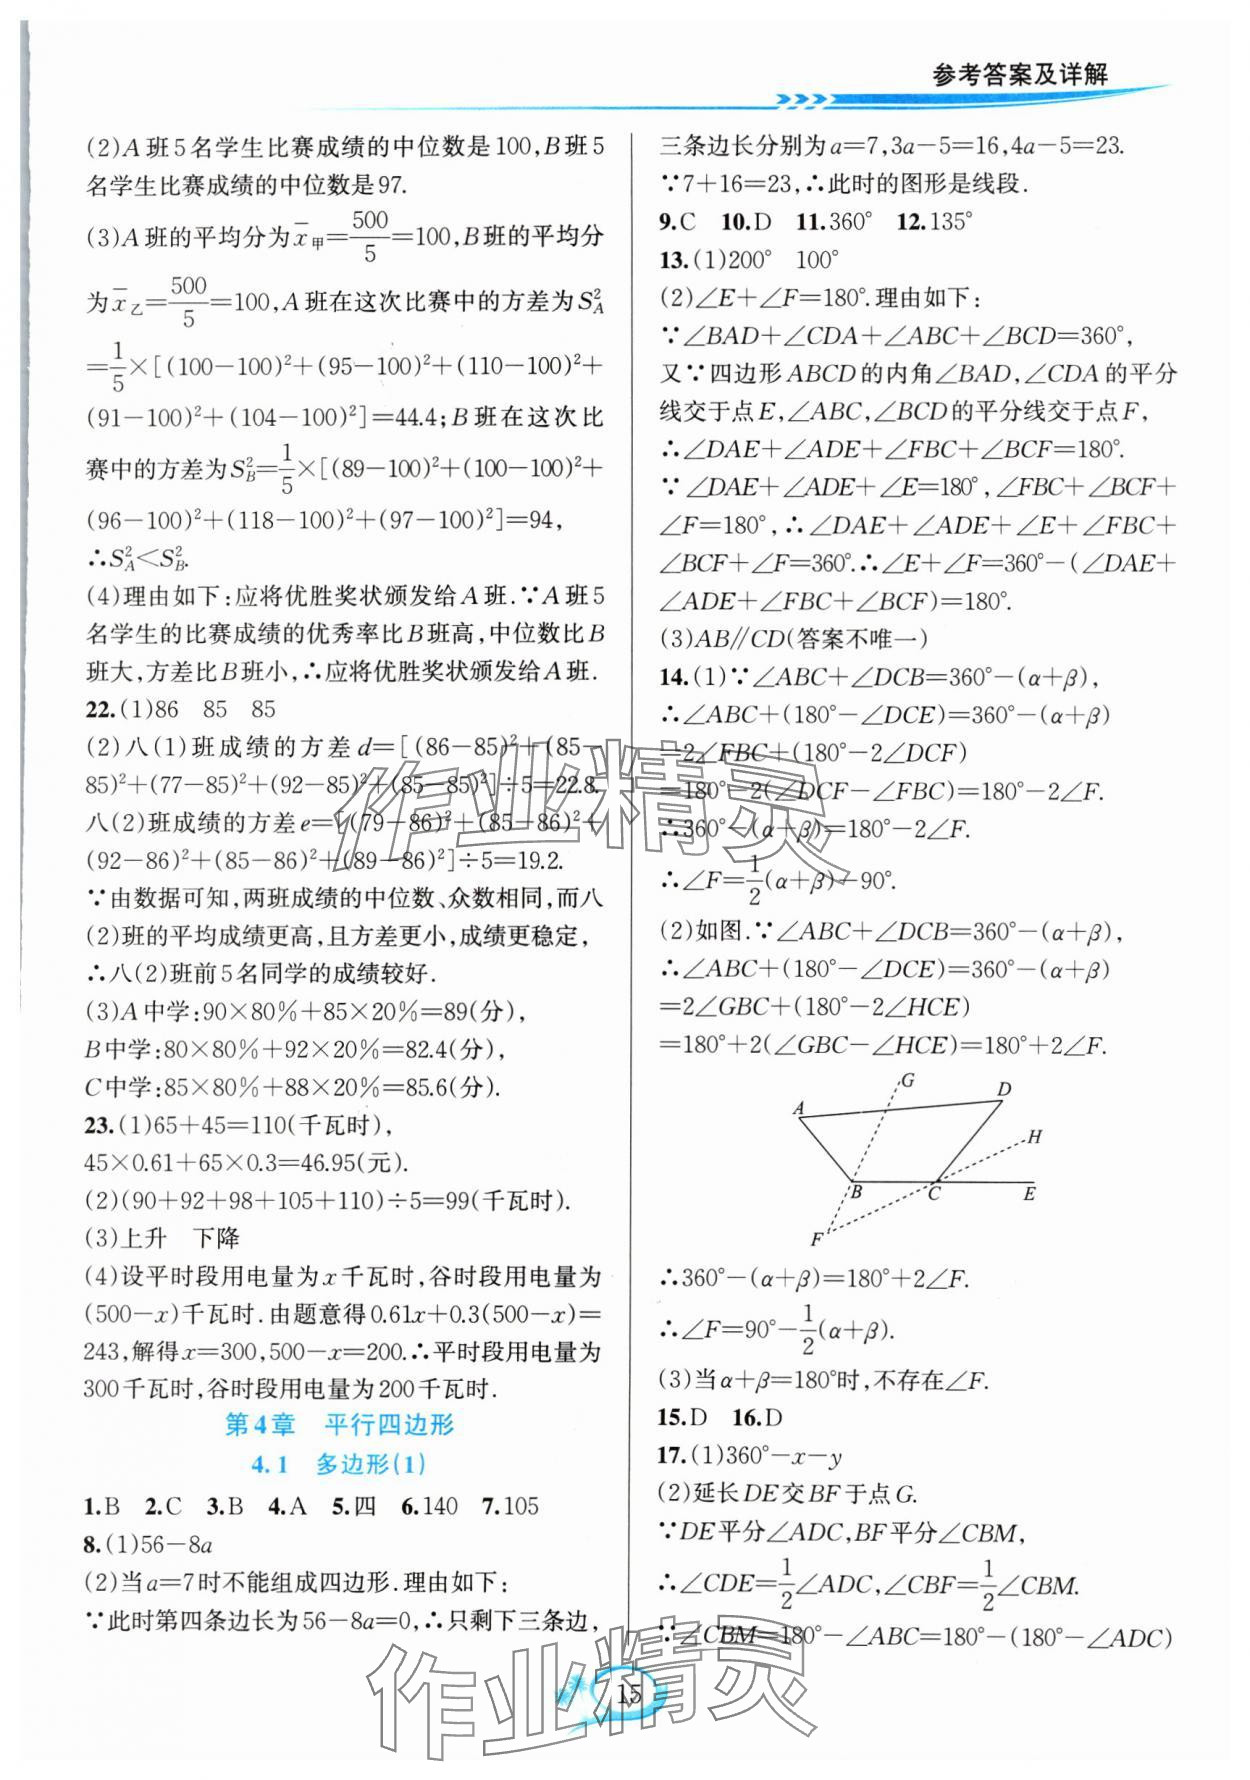 参考答案及详解
(2)A班5名学生比赛成绩的中位数是100,B班5
名学生比赛成绩的中位数是97.
(3)A班的平均分为x̄甲=500/5=100,B班的平均分
为x̄乙=500/5=100,A班在这次比赛中的方差为S²A
=1/5×[(100-100)²+(95-100)²+(110-100)²+
(91-100)²+(104-100)²]=44.4;B班在这次比
赛中的方差为S²B=1/5×[(89-100)²+(100-100)²+
(96-100)²+(118-100)²+(97-100)²]=94,
∴S²A<S²B.
(4)理由如下:应将优胜奖状颁发给A班.∵A班5
名学生的比赛成绩的优秀率比B班高,中位数比B
班大,方差比B班小,∴应将优胜奖状颁发给A班.
22.(1)86 85 85
(2)八(1)班成绩的方差d=[(86-85)²+(85-
85)²+(77-85)²+(92-85)²+(85-85)²]÷5=22.8.
八(2)班成绩的方差e=[(79-86)²+(85-86)²+
(92-86)²+(85-86)²+(89-86)²]÷5=19.2.
∵由数据可知,两班成绩的中位数、众数相同,而八
(2)班的平均成绩更高,且方差更小,成绩更稳定,
∴八(2)班前5名同学的成绩较好.
(3)A中学:90×80%+85×20%=89(分),
B中学:80×80%+92×20%=82.4(分),
C中学:85×80%+88×20%=85.6(分).
23.(1)65+45=110(千瓦时),
45×0.61+65×0.3=46.95(元).
(2)(90+92+98+105+110)÷5=99(千瓦时).
(3)上升 下降
(4)设平时段用电量为x千瓦时,谷时段用电量为
(500-x)千瓦时.由题意得0.61x+0.3(500-x)=
243,解得x=300,500-x=200.∴平时段用电量为
300千瓦时,谷时段用电量为200千瓦时.
第4章 平行四边形
4.1 多边形(1)
1.B 2.C 3.B 4.A 5.四 6.140 7.105
8.(1)56-8a
(2)当a=7时不能组成四边形.理由如下:
∵此时第四条边长为56-8a=0,∴只剩下三条边,
三条边长分别为a=7,3a-5=16,4a-5=23.
∵7+16=23,∴此时的图形是线段.
9.C 10.D 11.360° 12.135°
13.(1)200° 100°
(2)∠E+∠F=180°.理由如下:
∵∠BAD+∠CDA+∠ABC+∠BCD=360°,
又∵四边形ABCD的内角∠BAD,∠CDA的平分
线交于点E,∠ABC,∠BCD的平分线交于点F,
∴∠DAE+∠ADE+∠FBC+∠BCF=180°.
∵∠DAE+∠ADE+∠E=180°,∠FBC+∠BCF+
∠F=180°,∴∠DAE+∠ADE+∠E+∠FBC+
∠BCF+∠F=360°.∴∠E+∠F=360°-(∠DAE+
∠ADE+∠FBC+∠BCF)=180°.
(3)AB∥CD(答案不唯一)
14.(1)∵∠ABC+∠DCB=360°-(α+β),
∴∠ABC+(180°-∠DCE)=360°-(α+β)
=2∠FBC+(180°-2∠DCF)
=180°-2(∠DCF-∠FBC)=180°-2∠F.
∴360°-(α+β)=180°-2∠F.
∴∠F=1/2(α+β)-90°.
(2)如图.∵∠ABC+∠DCB=360°-(α+β),
∴∠ABC+(180°-∠DCE)=360°-(α+β)
=2∠GBC+(180°-2∠HCE)
=180°+2(∠GBC-∠HCE)=180°+2∠F.
G
A
D
H
B
C
E
F
∴360°-(α+β)=180°+2∠F.
∴∠F=90°-1/2(α+β).
(3)当α+β=180°时,不存在∠F.
15.D 16.D
17.(1)360°-x-y
(2)延长DE交BF于点G.
∵DE平分∠ADC,BF平分∠CBM,
∴∠CDE=1/2∠ADC,∠CBF=1/2∠CBM.
∵∠CBM=180°-∠ABC=180°-(180°-∠ADC)
15
作业精灵
作业精灵